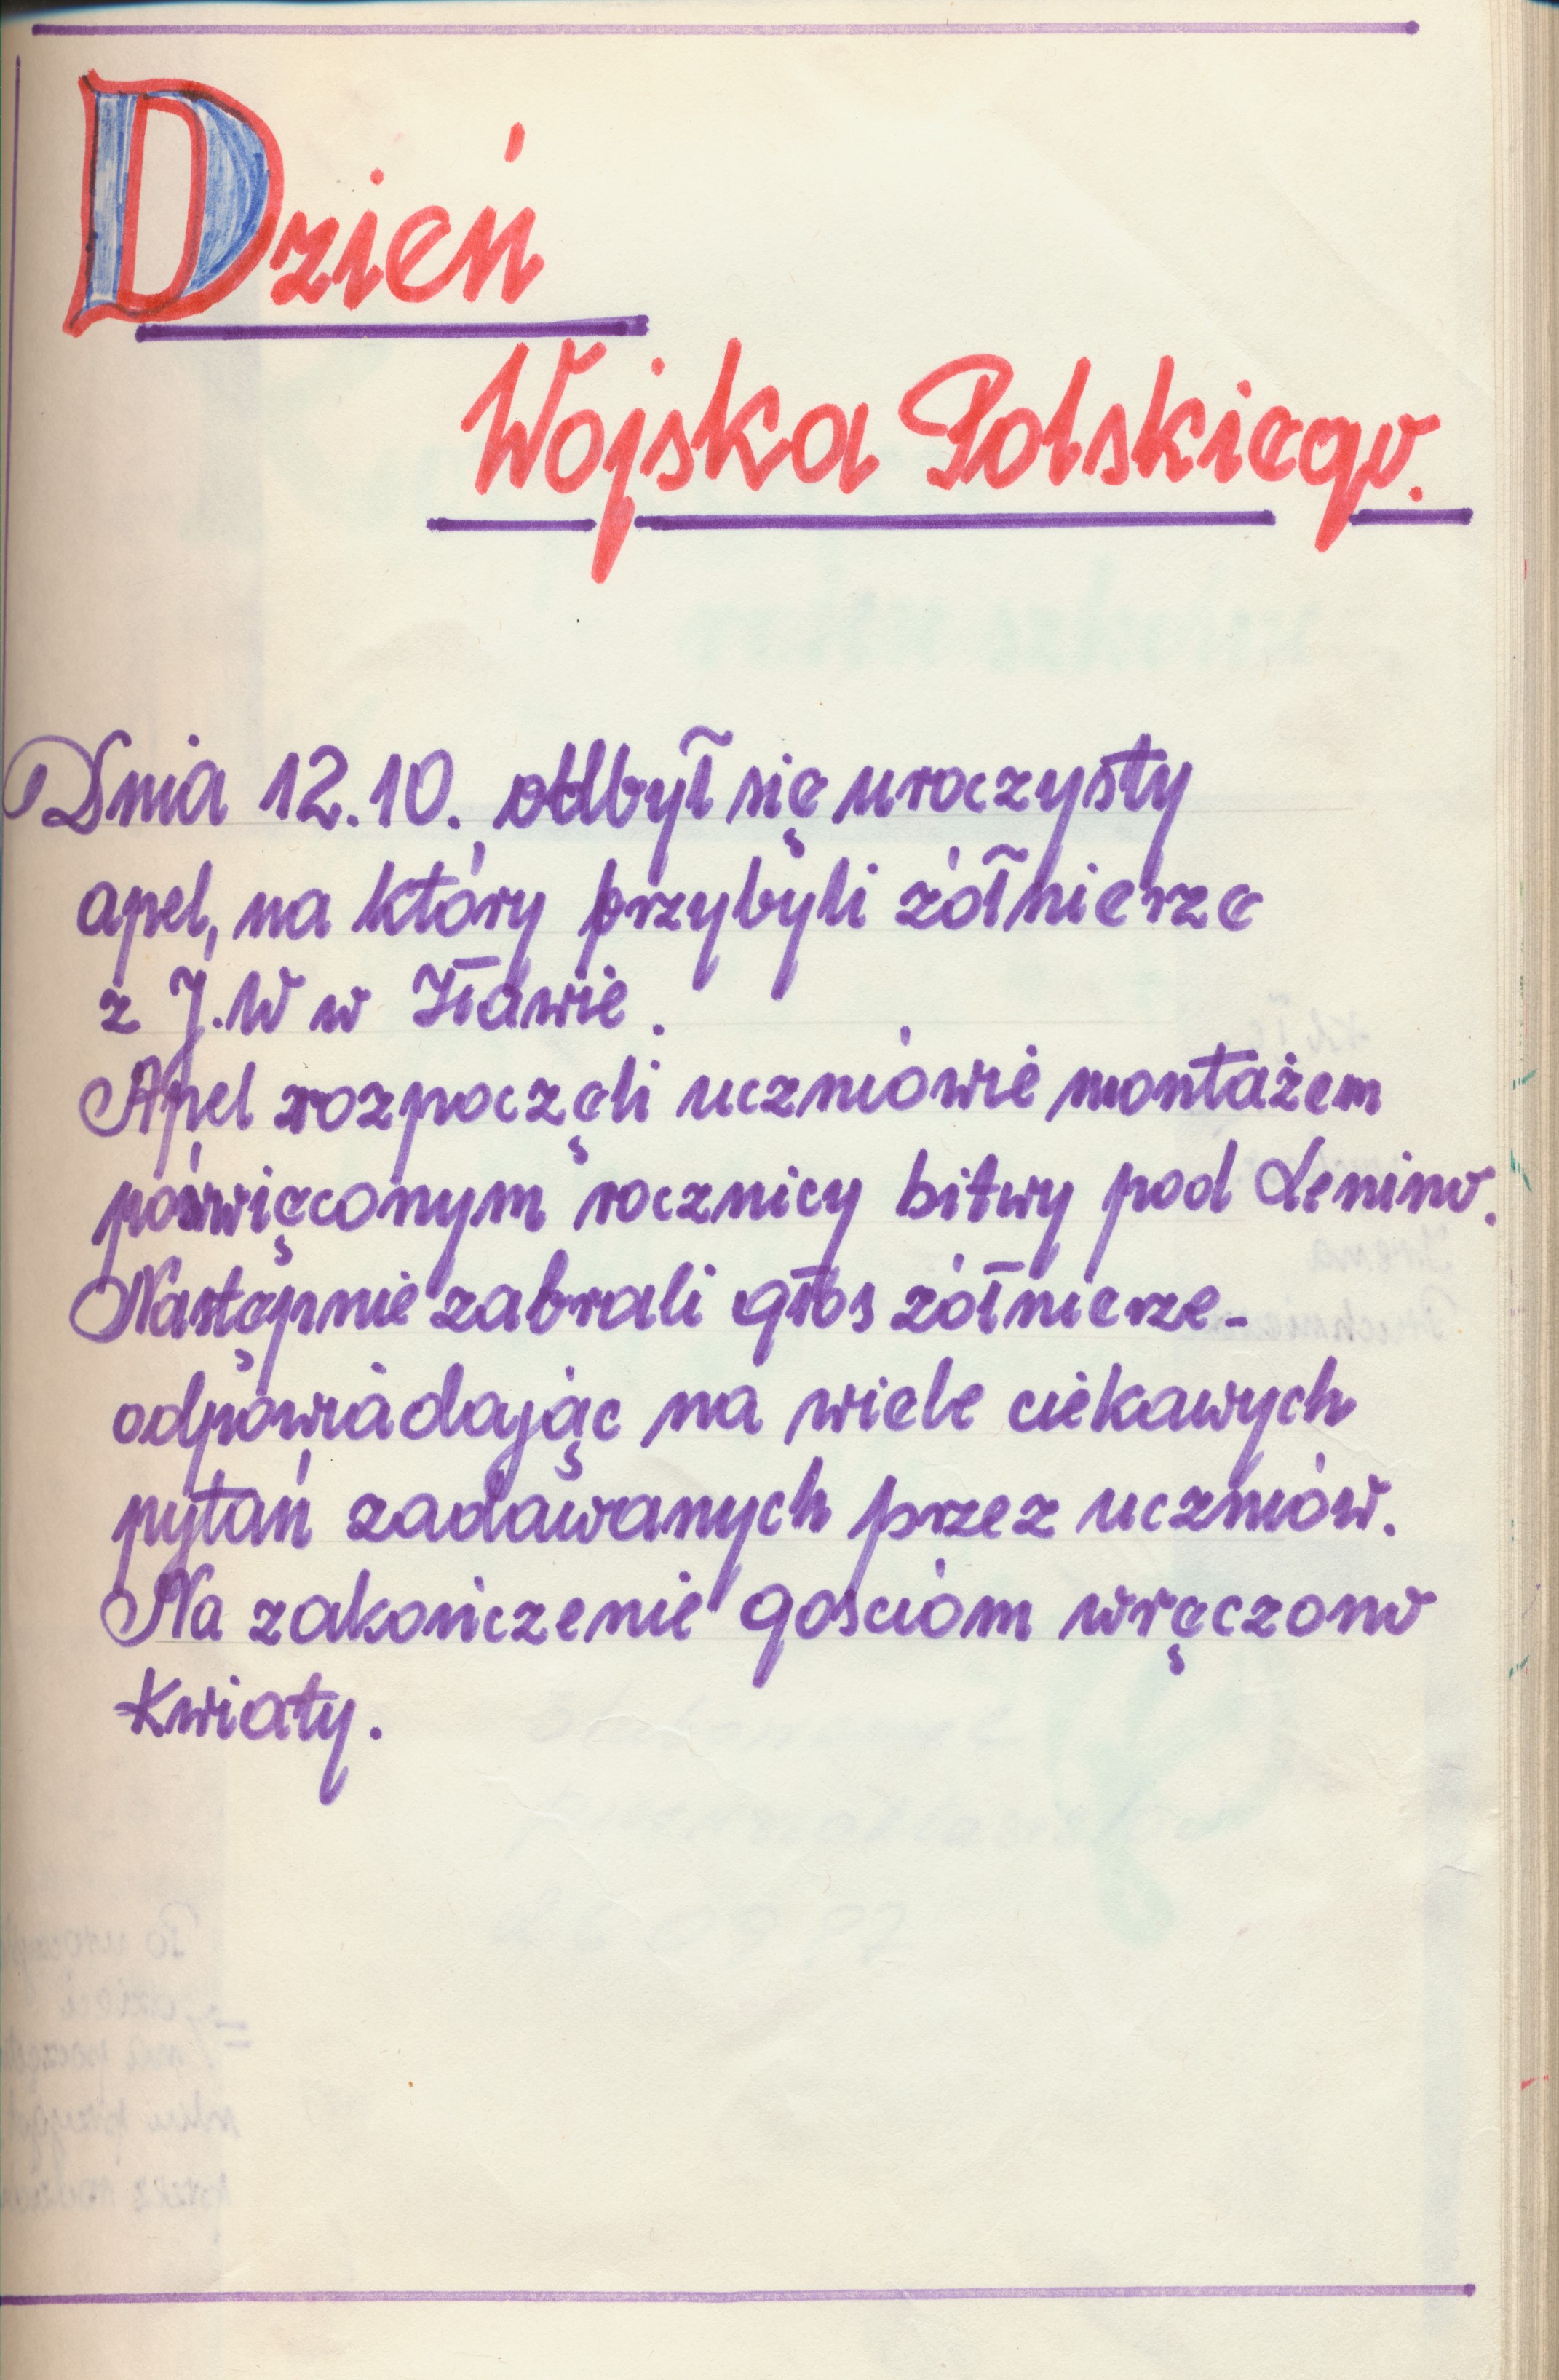 Dzień
Wojska Polskiego.
Dnia 12.10. odbył się uroczysty
apel, na który przybyli żółnierze
z J.W w Iławie.
Apel rozpoczęli uczniowie montażem
poświęconym rocznicy bitwy pod Lenino.
Następnie zabrali głos żółnierze-
odpowiadając na wiele ciekawych
pytań zadawanych przez uczniów.
Na zakończenie gościom wręczono
kwiaty.